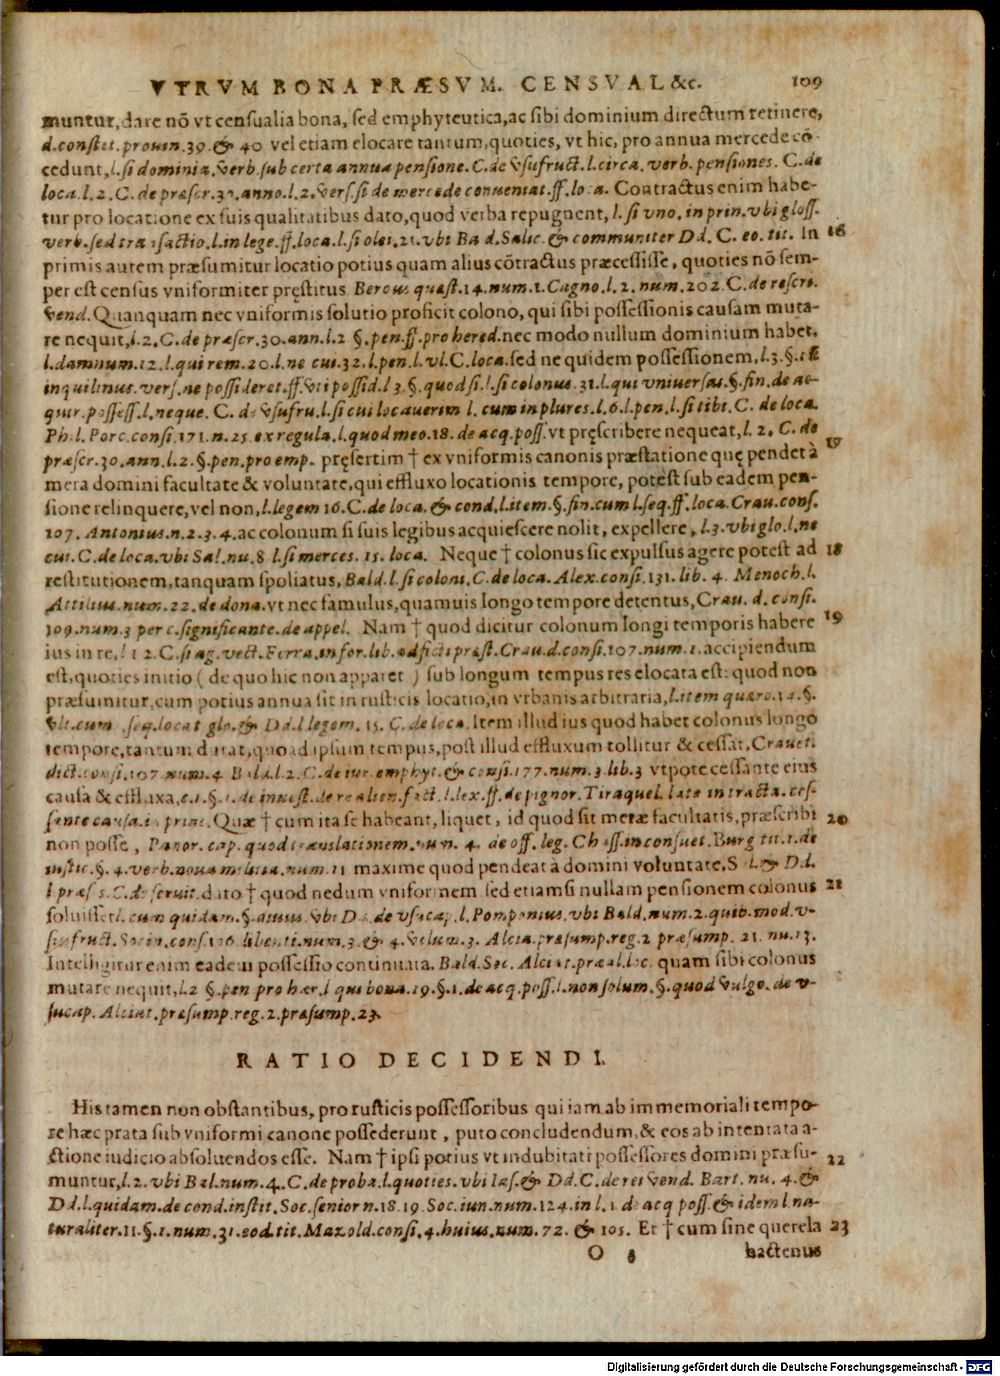 VTRVM BONA PRÆSVM. CENSVAL &c. 109
muntur, dare nō vt censualia bona, sed emphyteutica, ac sibi dominium directum retinere,
d. constit. prouin. 39. & 40 vel etiam elocare tantum, quoties, vt hic, pro annua mercede cō-
cedunt, l. si dominia, verb. sub certa annua pensione. C. de vsufruct. l. circa, verb. pensiones. C. de
loca. l. 2. C. de præscr. 30. anno. l. 2. vers. si de mercede conueniat. ff. loca. Contractus enim habe-
tur pro locatione ex suis qualitatibus dato, quod verba repugnent, l. si vno, in prin. vbi gloss.
verb. sed transactio. l. in lege. ff. loca. l. si olei. 21. vbi Bald. Salic. & communiter Dd. C. eo. tit. In 16
primis autem præsumitur locatio potius quam alius cōtractus præcessisse, quoties nō sem-
per est census vniformiter pręstitus Berous quæst. 14. num. 1. Cagno. l. 2. num. 202. C. de rescri.
vend. Quanquam nec vniformis solutio proficit colono, qui sibi possessionis causam muta-
re nequit, l. 2. C. de præscr. 30. ann. l. 2 §. pen. ff. pro hered. nec modo nullum dominium habet,
l. damnum. 12. l. qui rem. 20. l. ne cui. 32. l. pen. l. vl. C. loca. sed ne quidem possessionem, l. 3. §. is
inquilinus. vers. ne possideret. ff. vti possid. l 3. §. quod si. l. si colonus. 31. l. qui vniuersas. §. fin. de ac-
quir. possess. l. neque. C. de vsufru. l. si cui locauerim l. cum in plures. l. 6. l. pen. l. si tibi. C. de loca.
Phil. Porc. consi. 171. n. 25. ex regula, l. quod meo. 18. de acq. poss. vt pręscribere nequeat, l. 2. C. de
præscr. 30. ann. l. 2. §. pen. pro emp. pręsertim † ex vniformis canonis præstatione quę pendet à 17
mera domini facultate & voluntate, qui effluxo locationis tempore, potest sub eadem pen-
sione relinquere, vel non, l. legem 16. C. de loca. & cond. l. item. §. fin. cum l. seq. ff. loca. Crau. cons.
107. Antonius. n. 2. 3. 4. ac colonum si suis legibus acquiescere nolit, expellere, l. 3. vbi glo. l. ne
cui. C. de loca. vbi Sal. nu. 8 l. si merces. 15. loca. Neque † colonus sic expulsus agere potest ad 18
restitutionem, tanquam spoliatus, Bald. l. si coloni, C. de loca. Alex. consi. 131. lib. 4. Menoch. l.
Attilius. num. 22. de dona. vt nec famulus, quamuis longo tempore detentus, Crau. d. consi.
109. num. 3 per c. significante. de appel. Nam † quod dicitur colonum longi temporis habere 19
ius in re, l 1 2. C. si ag. vect. Ferra. in for. lib. ad ficti præst. Crau. d. consi. 107. num. 1. accipiendum
est, quoties initio (de quo hic non apparet) sub longum tempus res elocata est: quod non
præsumitur, cum potius annua sit in rusticis locatio, in vrbanis arbitraria, l. item quæro. 14. §.
vlt. cum seq. locat glo. & Dd. l legem. 15. C. de loca. Item illud ius quod habet colonus longo
tempore, tantum durat, quoad ipsum tempus, post illud effluxum tollitur & cessat, Crauet.
dict. consi. 107. num. 4 Bald. l. 2. C. de iur. emphyt. & consi. 177. num. 3. lib. 3 vtpote cessante eius
causa & effluxa, c. 1. §. 1. de inuest. de re alien. fact. l. lex. ff. de pignor. Tiraquel. late in tracta. ces-
sante causa. in princ. Quæ † cum ita se habeant, liquet, id quod sit meræ facultatis, præscribi 20
non posse, Panor. cap. quod translationem. num. 4. de off. leg. Chass. in consuet. Burg tit. 1. de
iustic. §. 4. verb. nouam litia. num. 11 maxime quod pendeat à domini voluntate, Sal. & Dd.
l præses. C. de seruit. dato † quod nedum vniformem sed etiam si nullam pensionem colonus 21
soluisset l. cum quidam. §. diuus. vbi Dd. de vsucap. l. Pomponius. vbi Bald. num. 2. quib. mod. v-
susfruct. Socin. consi. 126. libenti. num. 3. & 4. volum. 3. Alcia. præsump. reg. 2 præsump. 21. nu. 13.
Intelligitur enim eadem possessio continuata. Bald. Soc. Alciat. præal. loc. quam sibi colonus
mutare nequit, l. 2 §. pen pro hær. l qui bona. 19. §. 1. de acq. poss. l. non solum. §. quod vulgo. de v-
sucap. Alciat. præsump. reg. 2. præsump. 23.
RATIO DECIDENDI.
His tamen non obstantibus, pro rusticis possessoribus qui iam ab immemoriali tempo-
re hæc prata sub vniformi canone possederunt, puto concludendum, & eos ab intentata a-
ctione iudicio absoluendos esse. Nam † ipsi potius vt indubitati possessores domini præsu- 22
muntur, l. 2. vbi Bal. num. 4. C. de proba. l. quoties. vbi Ias. & Dd. C. de rei vend. Bart. nu. 4. &
Dd. l. quidam. de cond. instit. Soc. senior n. 18. 19. Soc. iun. num. 124. in l. 1. de acq poss. & idem l na-
turaliter. 11. §. 1. num. 31. eod. tit. Mazold. consi. 4. huius. num. 72. & 105. Et † cum sine querela 23
O hactenus
Digitalisierung gefördert durch die Deutsche Forschungsgemeinschaft - DFG